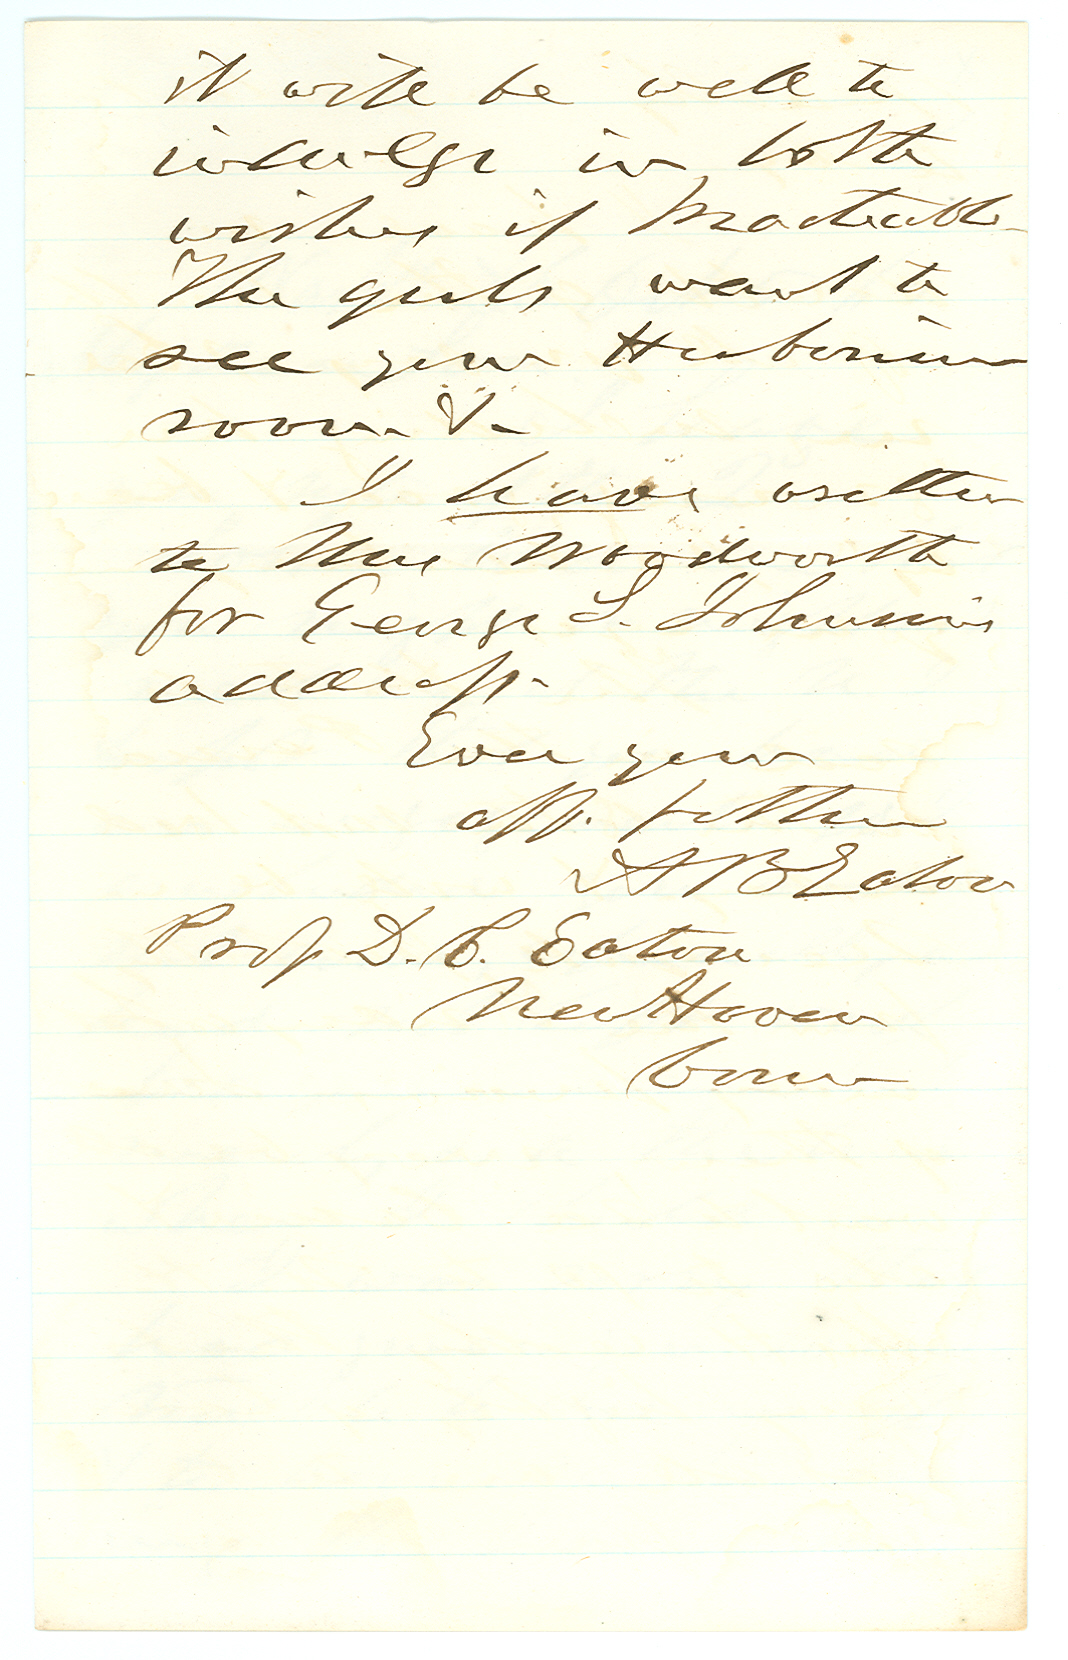 it will be well to
indulge in both
wishes if practicable.
The girls want to
see your Herbarium
room. &.
I have written
to Mrs Woodworth
for George S. Johnson's
address.
Ever your
aff. father
A B Eaton
Prof D. C. Eaton
New Haven
Conn